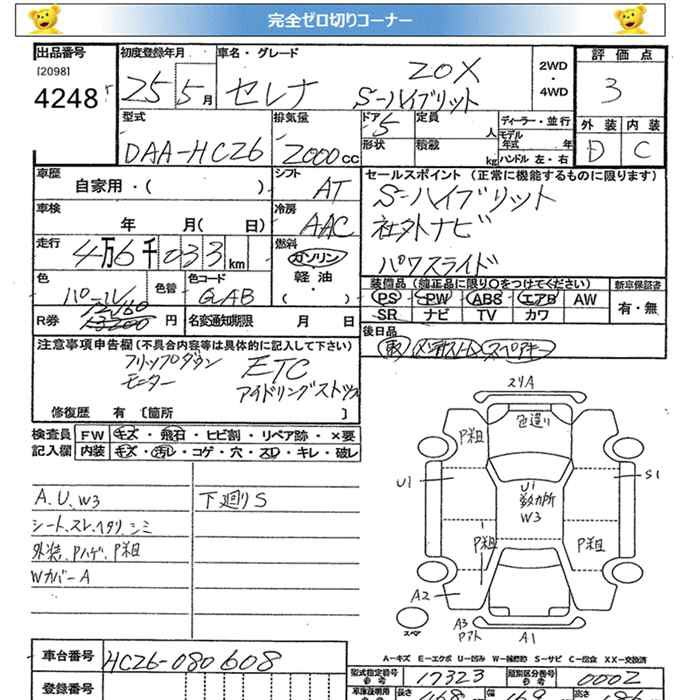 完全ゼロ切りコーナー
出品番号
[2098]
4248
初度登録年月
25 5月
車名・グレード
セレナ
20X
S-ハイブリット
2WD
・
4WD
評価点
3
外装 内装
D C
型式
DAA-HC26
排気量
2000cc
ドア
5
定員
人
形状
積載
kg
ディーラー・並行
モデル年式 年
ハンドル 左・右
車歴
自家用・( )
シフト
AT
車検
年 月( 日)
冷房
AAC
走行
4万6千033km
燃料
ガソリン
軽・油
・( )
色
パール
色替
色コード
QAB
R券
13200 円
名変通知期限 月 日
セールスポイント(正常に機能するものに限ります)
S-ハイブリット
社外ナビ
パワスライド
装備品(純正品に限り○をつけてください)
PS PW ABS エアB AW
SR ナビ TV カワ
新車保証書
有・無
後日品
スペアキー
注意事項申告欄(不具合内容等は具体的に記入して下さい)
フリップダウン
モニター
ETC
アイドリングストップ
修復歴 有[箇所 ]
検査員 FW キズ・飛石・ヒビ割・リペア跡・×要
記入欄 内装 キズ・汚し・コゲ・穴・スレ・キレ・破レ
A、U、W3
シート、スレ、ヘタリ、シミ
外装、Pハゲ、P粗
WカバーA
下廻りS
スリA
色違い
P粗
U1
S1
U1
数カ所
W3
P粗
P粗
A2
スペア
A3
A1
A-キズ E-エクボ U-凹み W-補修跡 S-サビ C-腐食 XX-交換済
車台番号
HC26-080608
登録番号
型式指定番号
参考
17323
類別区分番号
参考
0002
長さ
468